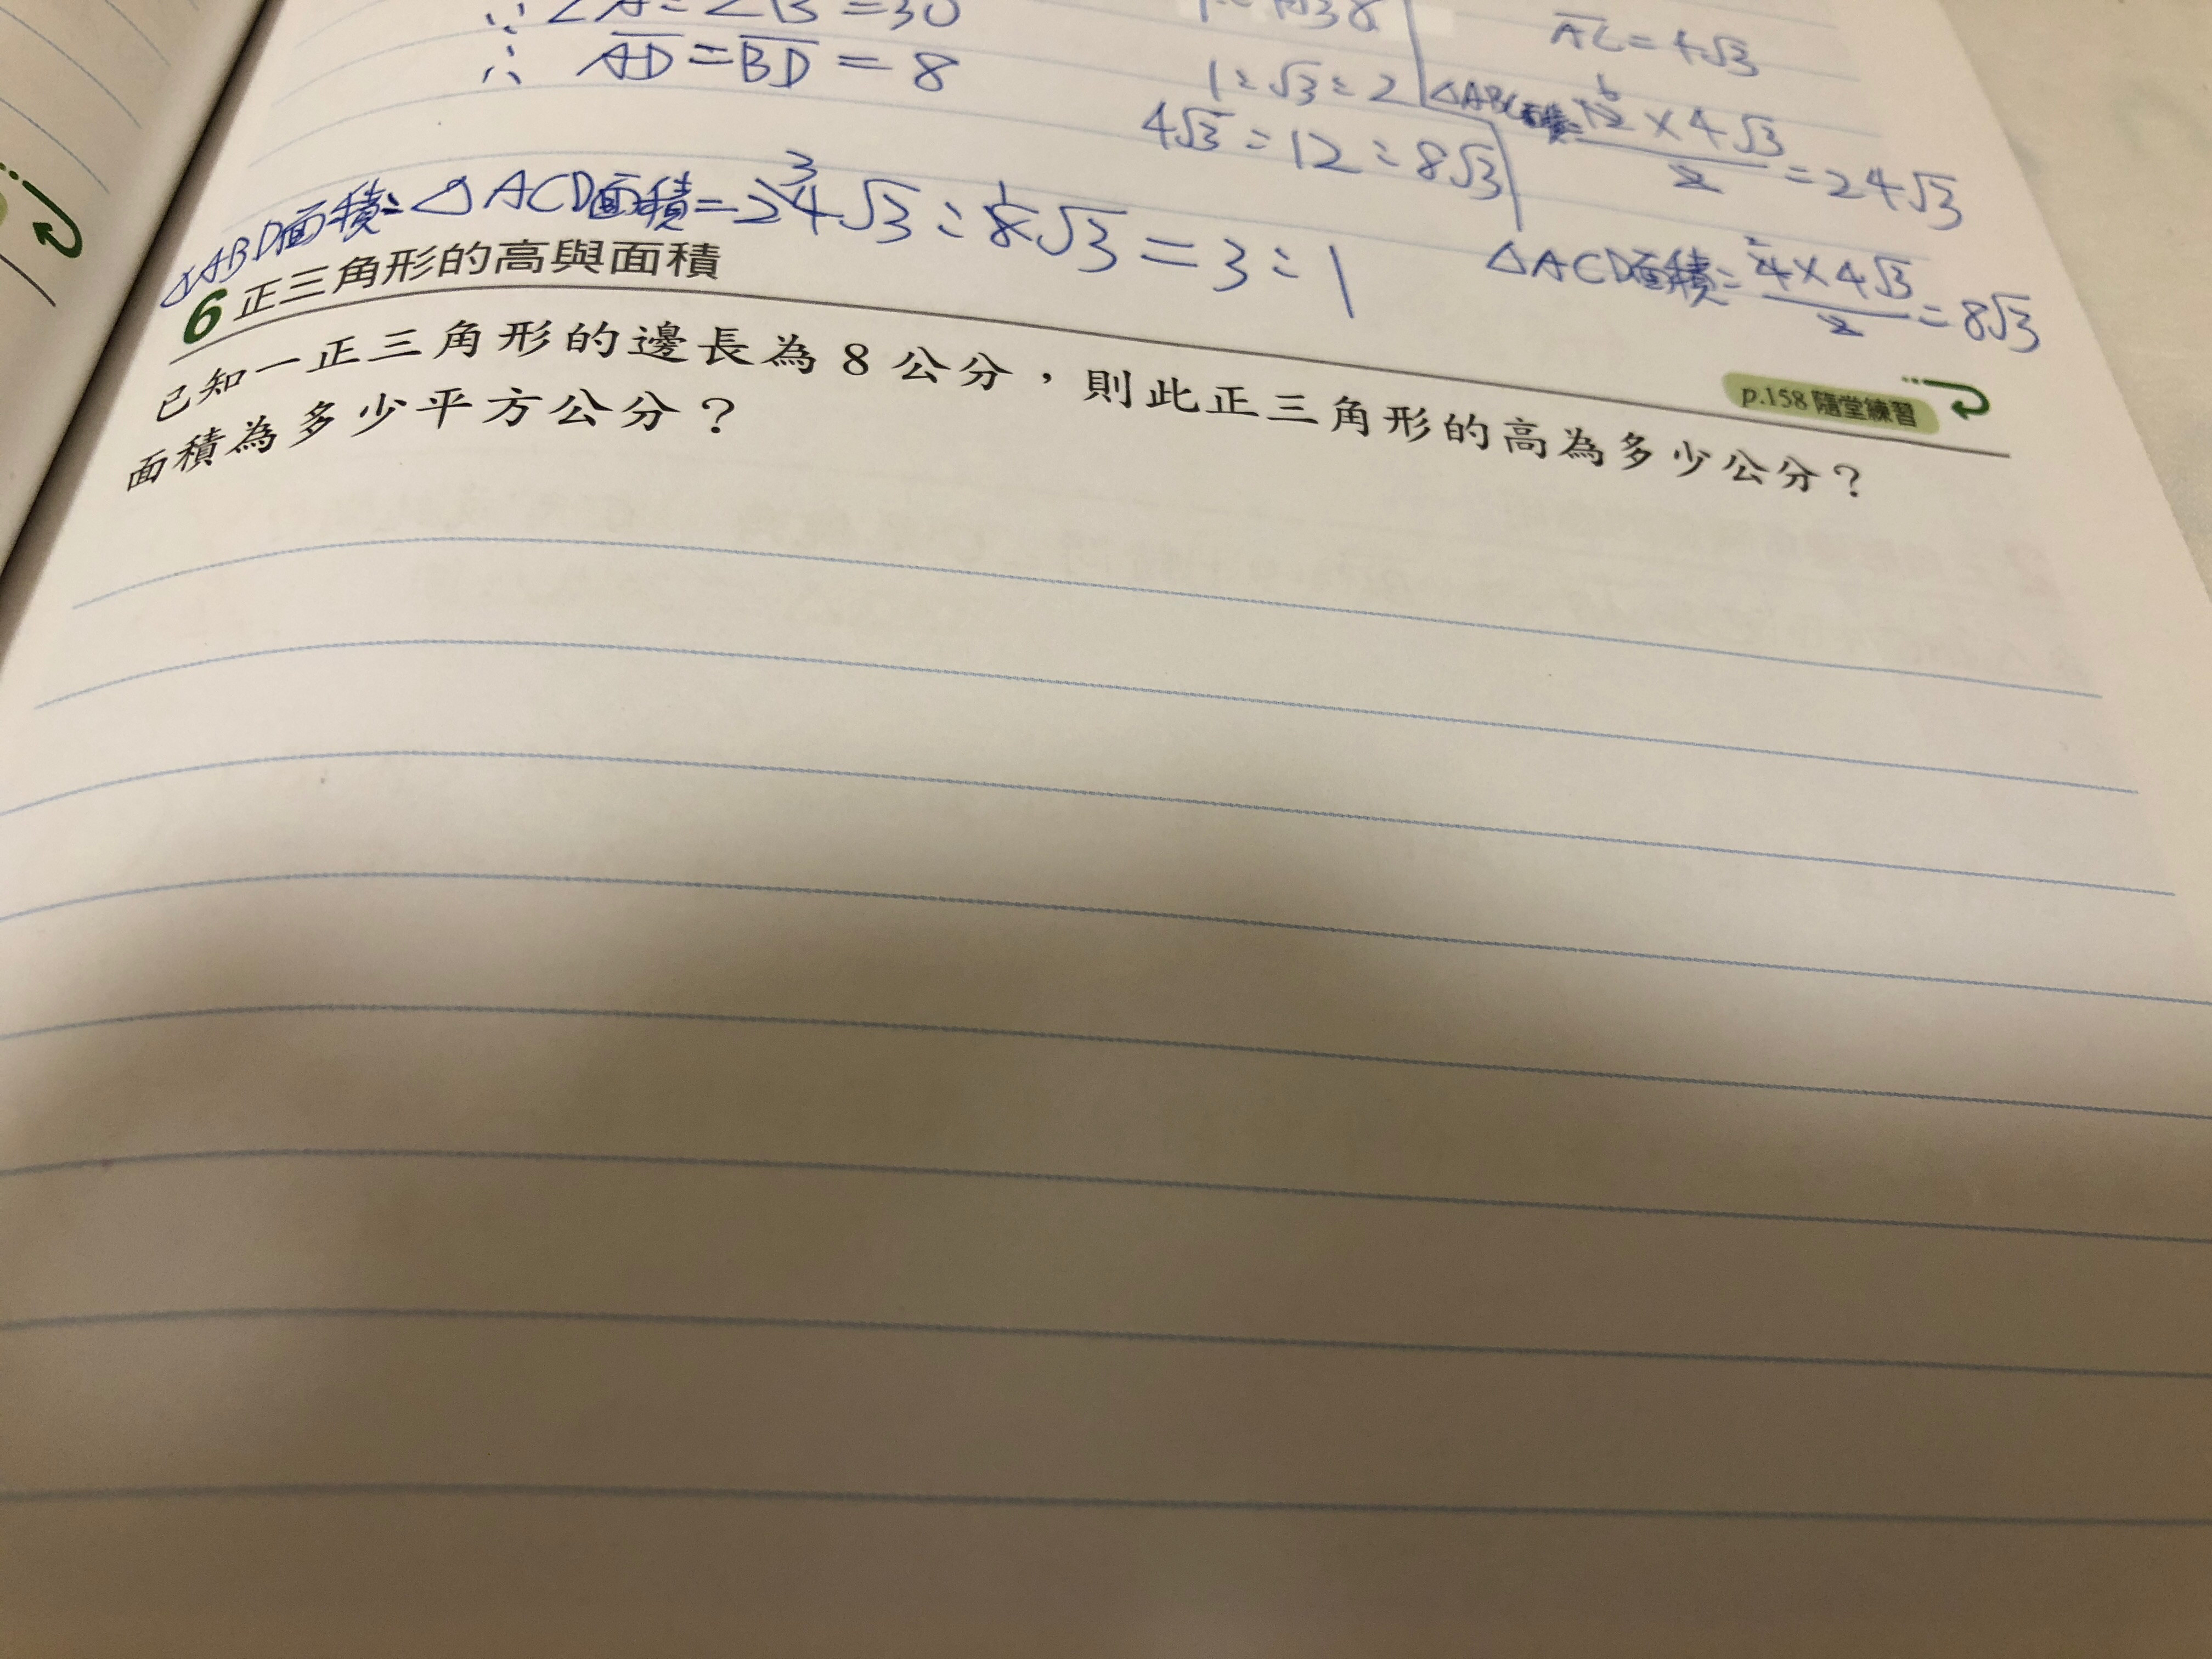 ∴ ∠A=∠B=30
∴ AD=BD=8
1:√3:2
4√3:12:8√3
AC=4√3
△ABC面積=12×4√3/2=24√3
△ABD面積:△ACD面積=24√3:8√3=3:1
△ACD面積=4×4√3/2=8√3
6 正三角形的高與面積
p.158 隨堂練習
已知一正三角形的邊長為 8 公分，則此正三角形的高為多少公分？
面積為多少平方公分？